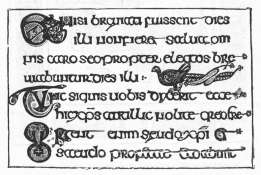 Et nisi breviati fuissent dies
illi non fieret salva om
nis caro sed propter electos bre
viabuntur dies illi :
Tunc siquis vobis dixerit ecce
hic xps aut illic nolite credere
Surgent enim pseudo xpi &
pseudo